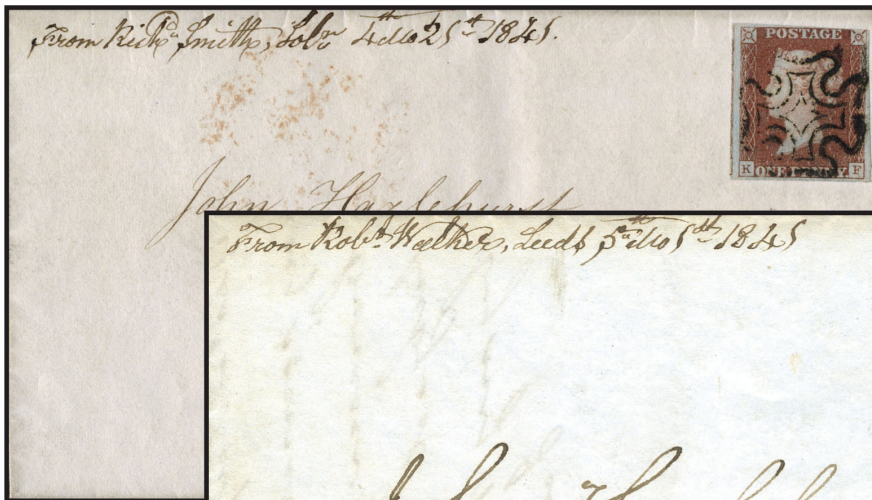 From Richd Smith, Solr 4th Mo 25th 1845.
POSTAGE
K ONE PENNY F
John Hazlehurst
From Robt Walker, Leeds 5th Mo 5th 1845